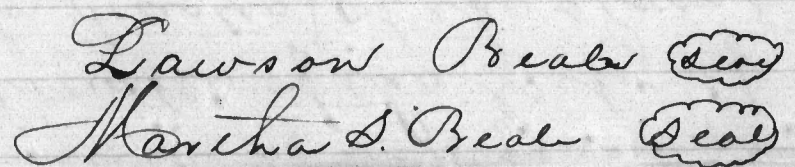 Lawson Beale Seal
Martha S. Beale Seal